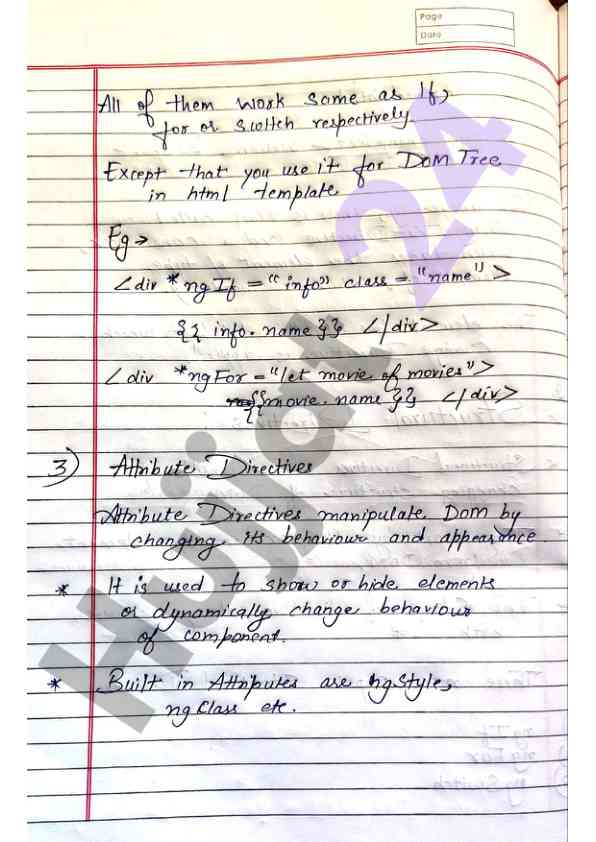 Page
Date
All of them work some as If,
for or switch respectively
Except that you use it for Dom Tree
in html template
Eg →
<div *ng If = "info" class = "name" >
{{ info.name }} </div>
<div *ngFor = "let movie of movies">
{{movie.name }} </div>
3) Attribute Directives
Attribute Directives manipulate Dom by
changing its behaviour and appearance
* It is used to show or hide elements
or dynamically change behaviour
of component.
* Built in Attributes are ngStyle,
ngClass etc.
Hujjat 24